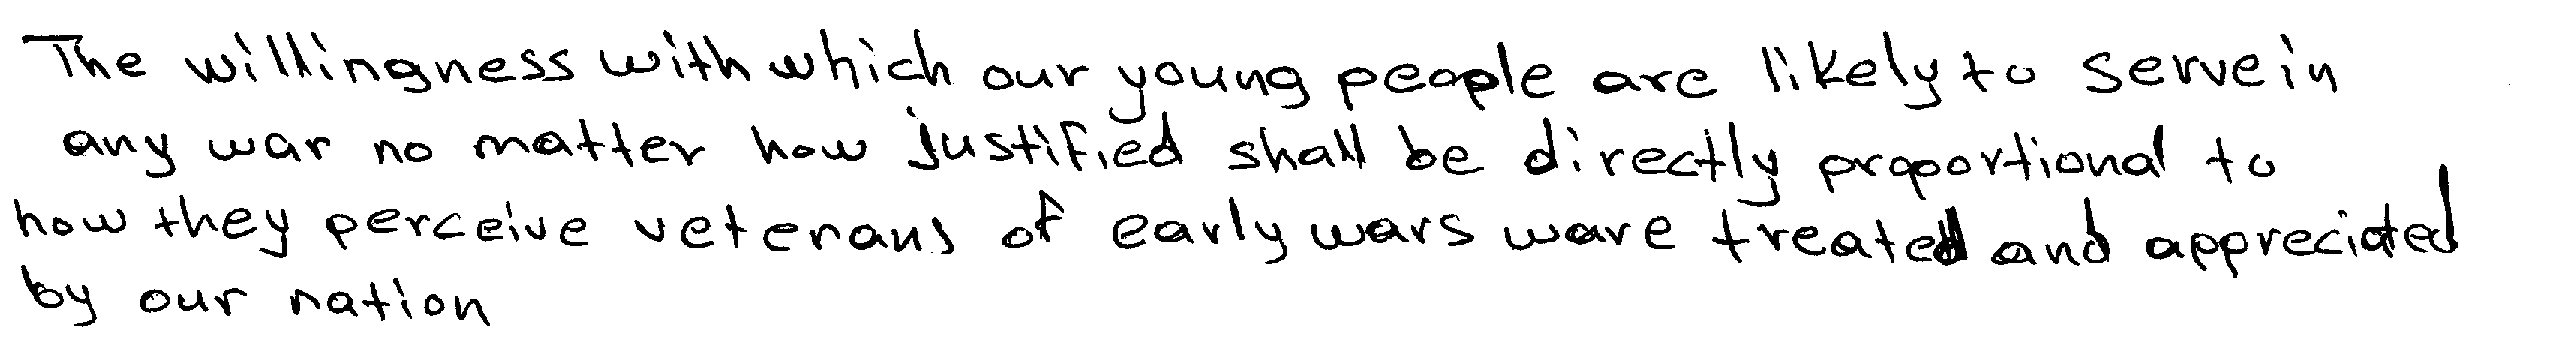 The willingness with which our young people are likely to serve in
any war no matter how justified shall be directly proportional to
how they perceive veterans of early wars ware treated and appreciated
by our nation